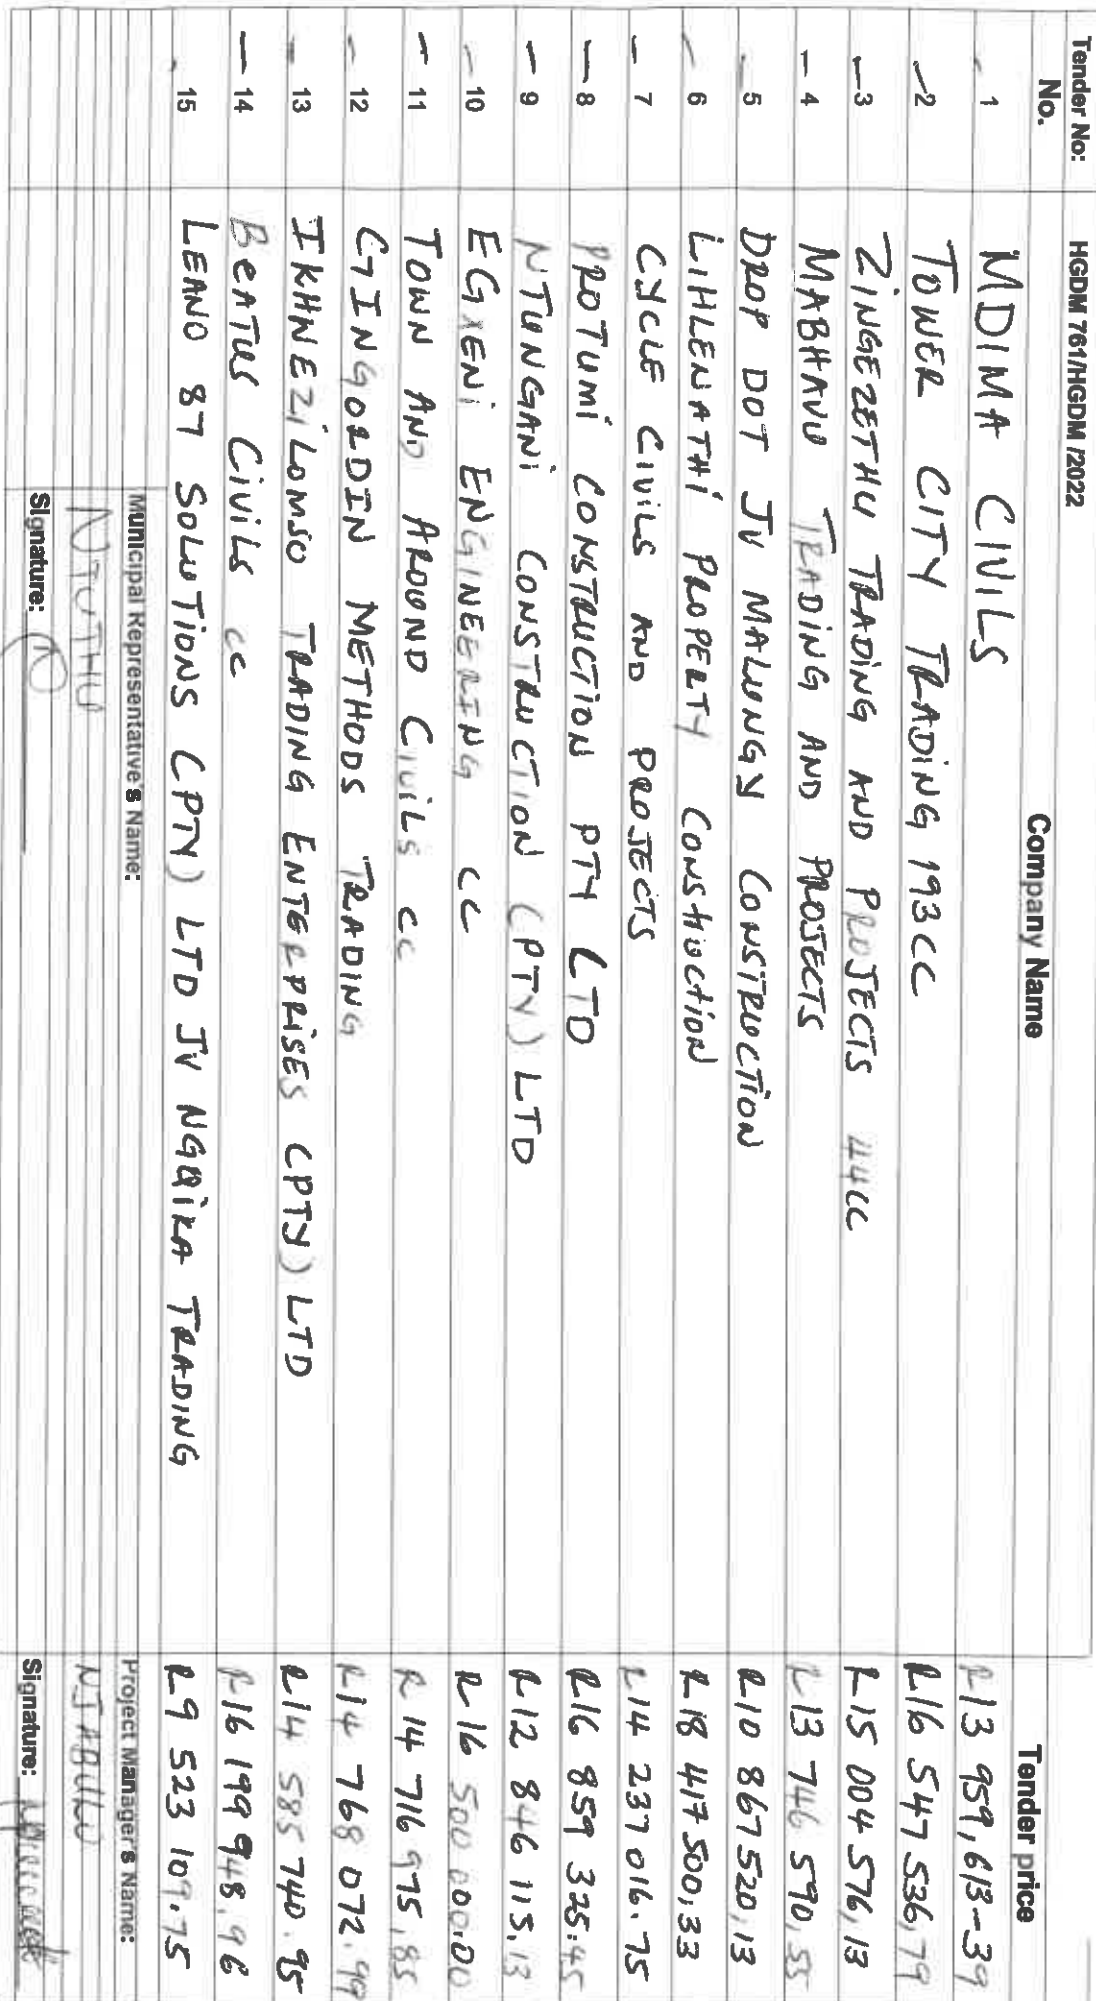 Tender No: HGDM 761/HGDM /2022
No. Company Name Tender price
1 MDIMA CIVILS R13 959,613-39
2 TOWER CITY TRADING 193CC R16 547 536,79
3 ZINGEZETHU TRADING AND PROJECTS 44CC R15 004 576,13
4 MABHAVU TRADING AND PROJECTS R13 746 590,55
5 DROP DOT JV MALUNGY CONSTRUCTION R10 867 520,13
6 LIHLENATHI PROPERTY CONStruction R18 417 500,33
7 CYCLE CIVILS AND PROJECTS R14 237 016.75
8 PROTUMI CONSTRUCTION PTY LTD R16 859 325.45
9 NTUNGANI CONSTRUCTION (PTY) LTD R12 846 115.13
10 EGXENI ENGINEERING CC R16 500 000.00
11 TOWN AND AROUND CIVILS CC R14 716 975,85
12 GINGORDIN METHODS TRADING R14 768 072.99
13 IKHNEZILOMSO TRADING ENTERPRISES (PTY) LTD R14 585 740.95
14 BEATUS CIVILS CC R16 199 948.96
15 LEANO 87 SOLUTIONS (PTY) LTD JV NGQIKA TRADING R9 523 109.75
Municipal Representative's Name: Project Manager's Name:
NTUTHU NJABULO
Signature: Signature: